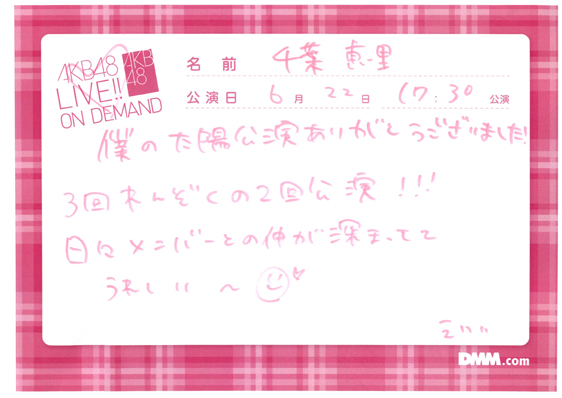 AKB48
LIVE!!
ON DEMAND
AKB
48
名前 千葉 恵里
公演日 6月 22日 17:30 公演
僕の太陽公演ありがとうございました!
3回れんぞくの2回公演!!!
日々メンバーとの仲が深まってて
うれしい〜
えりい
DMM.com